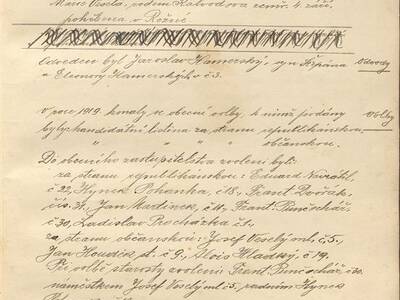 Marie Veselá, rozená Kalvodova zemř. 4. září
pohřbena v Rožné
Odveden byl Jaroslav Kamerský, syn Štěpána Odvody
a Eleonory Kamerských č 3.
V roce 1919. konaly se obecní volby k nimž podány Volby
byly kandidátní listina za stranu republikánskou a
" " " " občanskou.
Do obecního zastupitelstva zvoleni byli:
za stranu republikánskou: Eduard Navrátil,
č 22, Hynek Pohanka, č 18, Frant Dvořák,
čís. 31, Jan Martinek, č 14, Frant. Punčochář,
č 30, Ladislav Procházka č 1,
za stranu občanskou: Josef Veselý ml. č 5.,
Jan Houdek st. č 9, Alois Hladký, č 19.
Při volbě starosty zvolen: Frant Punčochář č 30.
náměstkem Josef Veselý ml č 5, radním Hynek